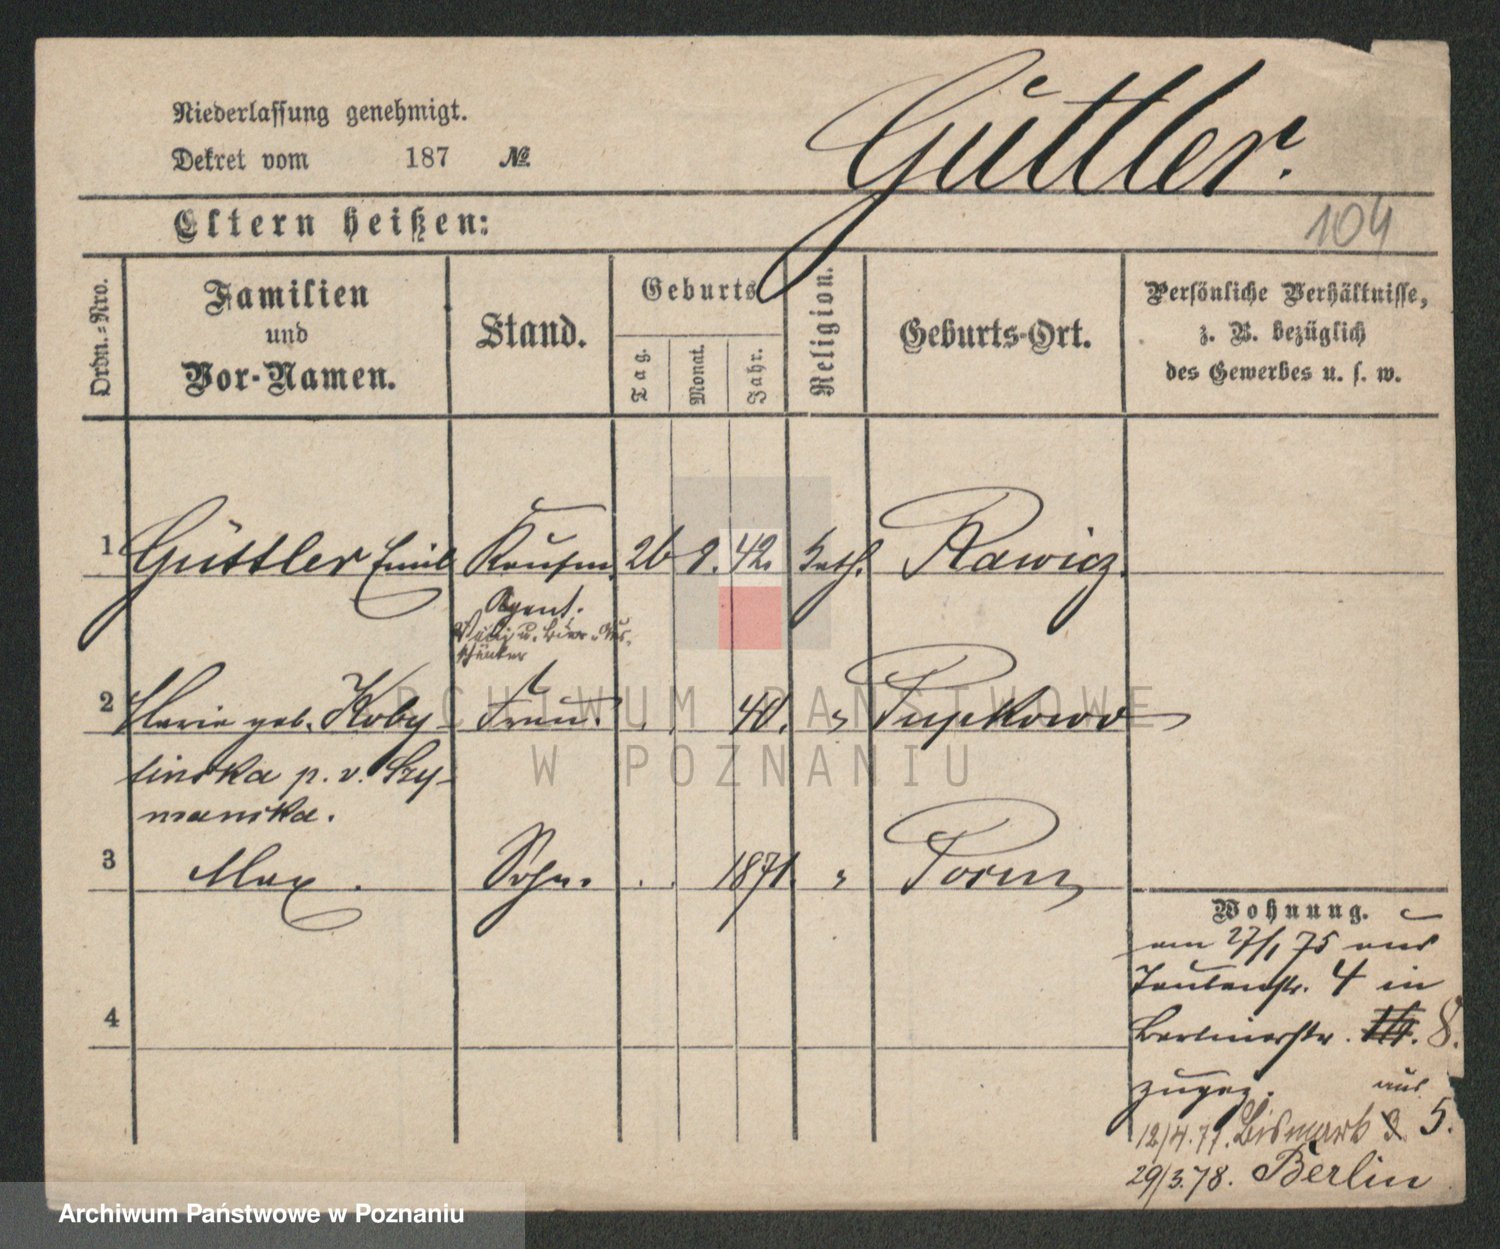 Niederlassung genehmigt.
Dekret vom 187 №
Güttler.
104
Eltern heißen:
Ordn.-Nro.
Familien
und
Vor-Namen.
Stand.
Geburts
Tag.
Monat.
Jahr.
Religion.
Geburts-Ort.
Persönliche Verhältnisse,
z. B. bezüglich
des Gewerbes u. s. w.
1 Güttler Emil Kaufm. 26 9. 42. kath. Rawicz.
Agent.
2 Maria geb. Koby- Frau. 40. " Pupkowo
linska p. v. Szy-
manska.
3 Max. Sohn. 1871. " Posen
4
Wohnung.
am 27/1 75 aus
Taubenstr. 4 in
Berlinerstr. 8.
zugez. aus
12/4.77. Bismark 5.
29/3.78. Berlin
ARCHIWUM PAŃSTWOWE
W POZNANIU
Archiwum Państwowe w Poznaniu